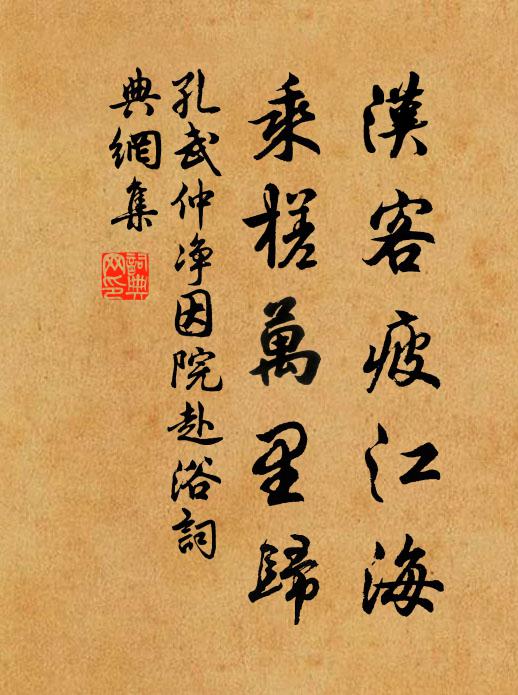 漢客疲江海
乘槎萬里歸
孔武仲净因院赴浴詞
典網集
詞典网印